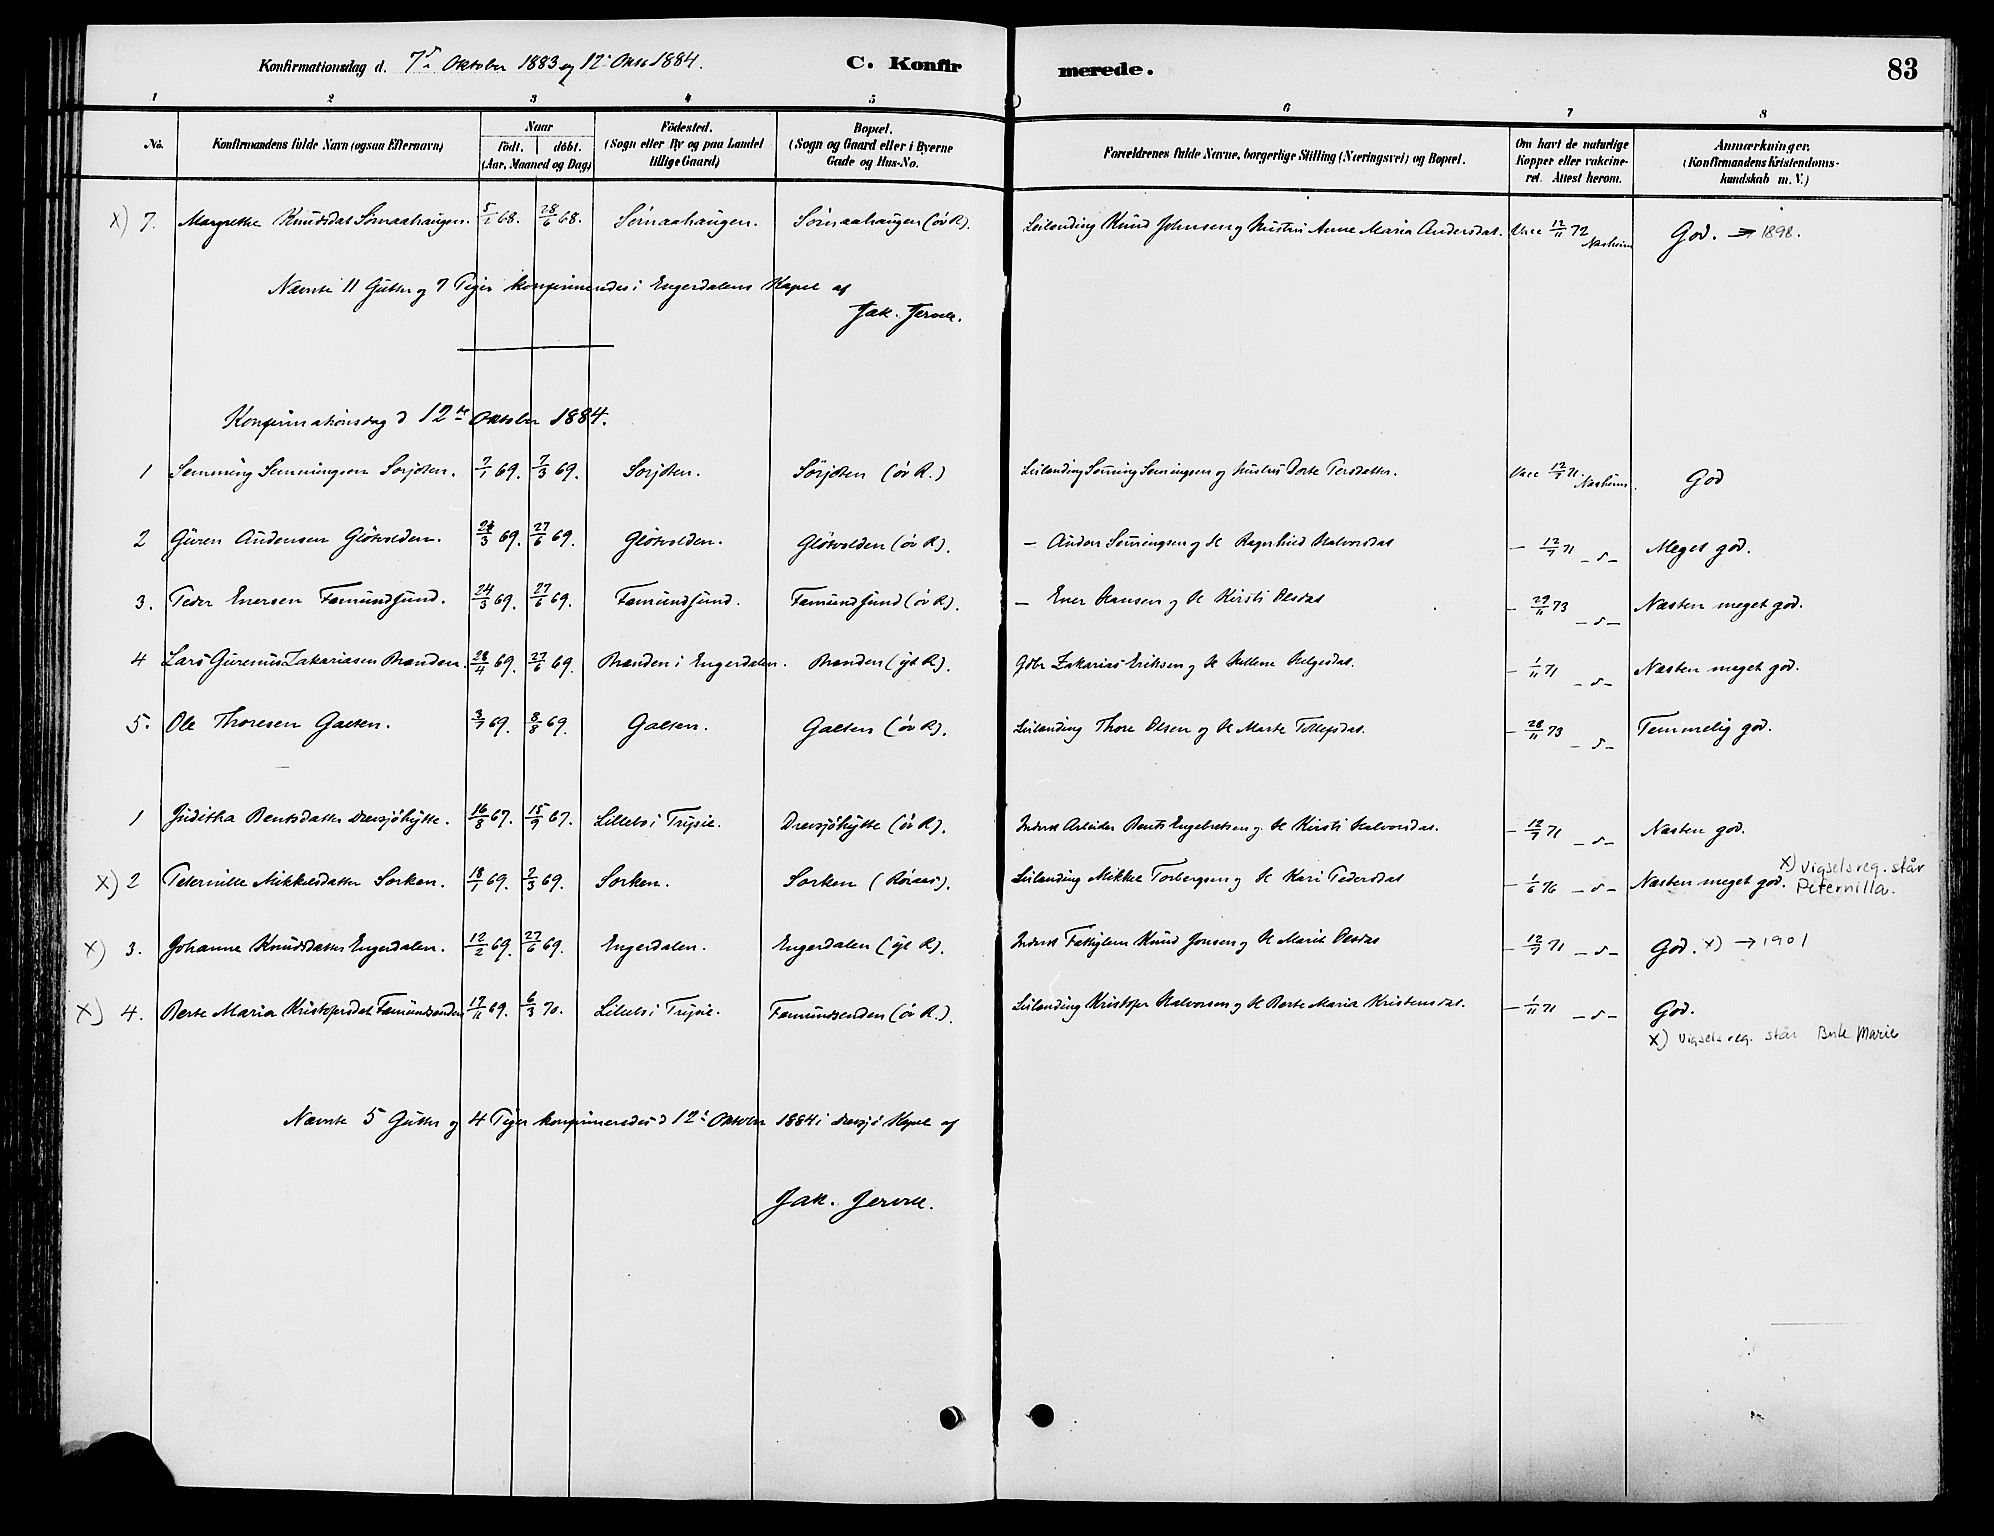 Konfirmationsdag d. 7de Oktober 1883 og 12te Okt. 1884. C. Konfirmerede. 83
1 2 3 4 5 6 7 8
No. Konfirmandens fulde Navn (ogsaa Efternavn) Naar født. døbt. (Aar, Maaned og Dag) Fødested. (Sogn eller By og paa Landet tillige Gaard) Bopæl. (Sogn og Gaard eller i Byerne Gade og Hus-No. Forældrenes fulde Navne, borgerlige Stilling (Næringsvei) og Bopæl. Om havt de naturlige Kopper eller vakcineret. Attest herom. Anmærkninger. (Konfirmandens Kristendomskundskab m. V.)
x) 7. Margrethe Knudsdat Sømaahaugen. 5/1 68. 28/6 68. Sømaahaugen. Sømaahaugen (øv R). Leilending Knud Johnsen og Hustru Anne Maria Andersdat. Vacc 12/11 72 Næsheim God. → 1898.
Nævnte 11 Gutter og 7 Piger konfirmeredes i Engerdalens Kapel af
Jak. Jervell.
Konfirmationsdag d 12te Oktober 1884.
1 Semming Semmingsen Sorjoten. 7/1 69. 7/3 69. Sorjoten. Sörjoten (øv R.) Leilending Semming Semmingsen og Hustru Dorte Persdatter. Vacc 12/7 71. Næsheim. God
2 Guren Andersen Gløtvolden. 28/3 69. 27/6 69. Gløtvolden. Gløtvolden (øv R). — Anders Semmingsen og H Ragnhild Halvorsdat — 12/7 71 — s — Meget god.
3. Peder Enersen Fæmundsund. 24/3 69. 27/6 69. Fæmundsund. Fæmundsund (øv R). — Ener Hansen og H Kirsti Olsdat — 29/11 73 — s — Næsten meget god.
4 Lars Gurenius Zakariasen Brænden. 28/4 69. 27/6 69. Brænden i Engerdalen. Brænden (yt R). Gdbr Zakarias Eriksen og H Hellene Helgesdat. — 1/11 71 — s — Næsten meget god.
5. Ole Thoresen Galten. 3/7 69. 8/8 69. Galten. Galten (øv R). Leilending Thore Olsen og H Marte Tollefsdat. — 28/11 73 — s — Temmelig god.
1 Juditha Bentsdatter Drevsjøhytte. 16/8 67. 15/9 67. Lillebo i Trysil. Drevsjøhytte (øv R). Inderst Arbeider Bent Engebretsen og H Kirsti Halvorsdat. — 12/7 71 — s — Næsten god.
x) 2 Peternille Mikkelsdatter Sorken. 18/1 69. 2/3 69. Sorken. Sorken (Røraas). Leilending Mikkel Torbergsen og H Kari Pedersdat — 1/6 76 — s — Næsten meget god. x) Vigselsreg. står Peternilla.
x) 3. Johanne Knudsdatter Engerdalen. 12/2 69. 27/6 69. Engerdalen. Engerdalen (yt R). Inderst Fattiglem Knud Jonsen og H Marit Olsdat — 12/7 71 — s — God. x) → 1901
x) 4. Berte Maria Kristofersdat Fæmundsenden 17/11 69. 6/3 70. Lillebo i Trysil. Fæmundsenden (øv R.). Leilending Kristofer Halvorsen og H Berte Maria Kristensdat. — 1/11 71 — s — God.
x) Vigselsreg. står Berte Marie
Nævnte 5 Gutter og 4 Piger konfirmeredes d 12te Oktober 1884 i Drevsjø Kapel af
Jak. Jervell.